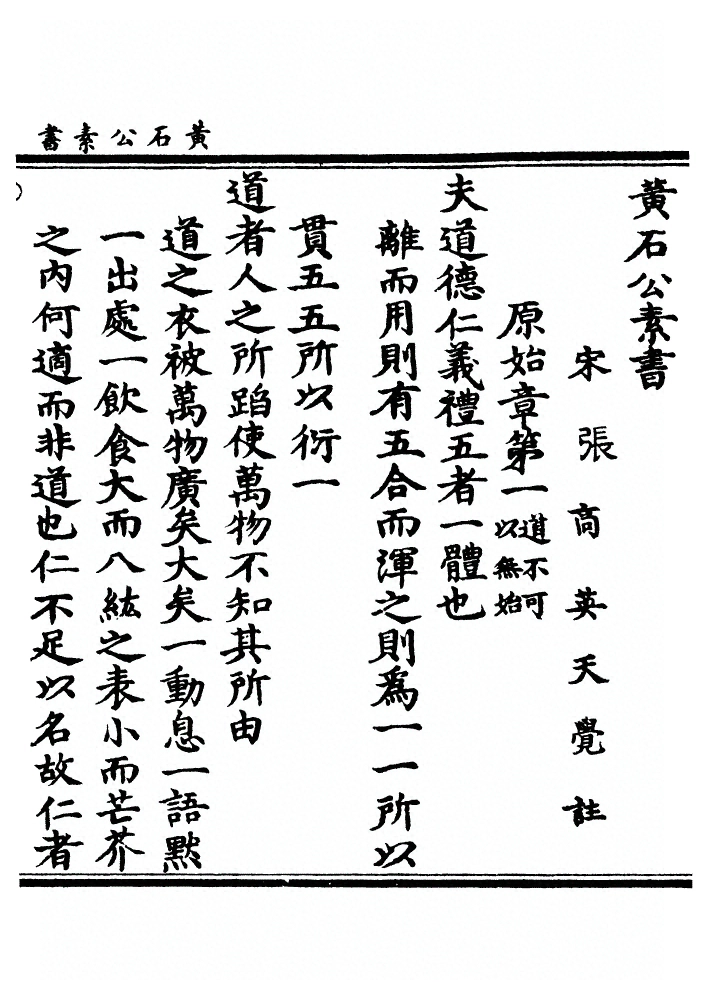 黃石公素書
黃石公素書
宋張商英天覺註
原始章第一道不可以無始
夫道德仁義禮五者一體也
離而用則有五合而渾之則爲一一所以
貫五五所以衍一
道者人之所蹈使萬物不知其所由
道之衣被萬物廣矣大矣一動息一語默
一出處一飲食大而八紘之表小而芒芥
之內何適而非道也仁不足以名故仁者